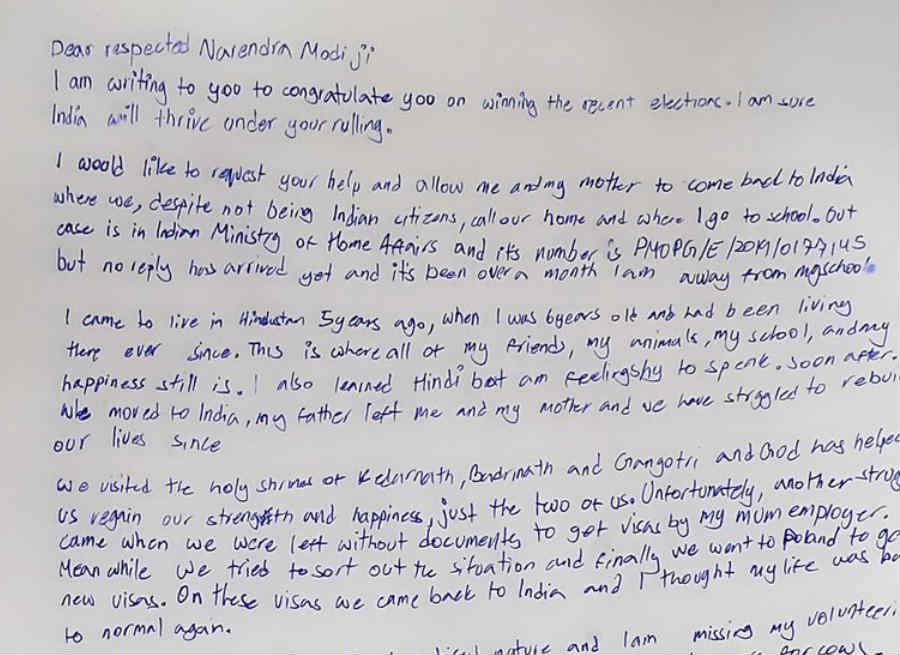 Dear respected Narendra Modi ji
I am writing to yoo to congratulate yoo on winning the recent elections. I am sure
India will thrive onder your rulling.
I woold like to request your help and allow me and my mother to come back to India
where we, despite not being Indian citizens, call our home and where I go to school. Out
case is in Indian Ministry of Home Affairs and its number is PMOPG/E/2019/0177145
but no reply has arrived yet and it's been over a month I am away from my school.
I came to live in Hindustan 5 years ago, when I was 6 years old and had been living
there ever since. This is where all of my friends, my animals, my school, and my
happiness still is. I also learned Hindi but am feeling shy to speak. Soon after.
We moved to India, my father left me and my mother and we have strggled to rebui
our lives since
We visited the holy shrines of Kedarnath, Badrinath and Gangotri and God has helped
us regain our strength and happiness, just the two of us. Unfortunately, another strug
came when we were left without documents to get visas by my mum employer.
Mean while we tried to sort out the sitvation and finally we went to Poland to ge
new visas. On these visas we came back to India and I thought my life was ba
to normal again.
nature and I am missing my volunteeri
for cows